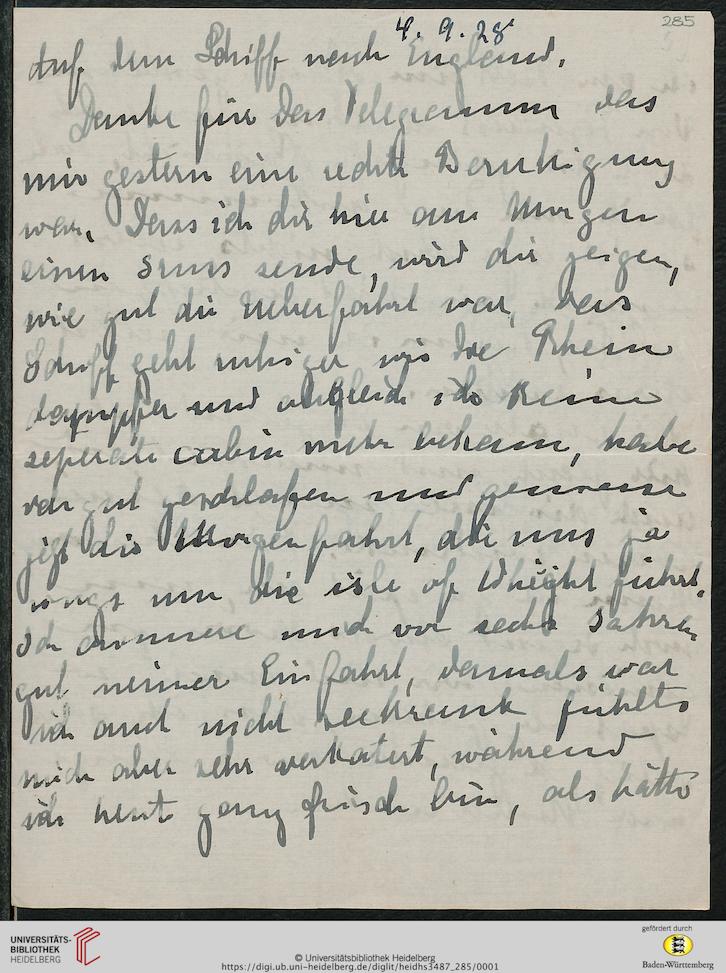 285
4. 9. 28
Auf dem Schiff nach England.
Danke für das Telegramm das
mir gestern eine rechte Beruhigung
war. Dass ich dir hier am Morgen
einen Gruss sende, wird dir zeigen,
wie gut die Ueberfahrt war, das
Schiff geht ruhiger wie die Rhein
dampfer und obgleich ich keine
seperate cabin mehr bekam, habe
gut geschlafen und geniesse
jetzt die Morgenfahrt, die uns ja
rings um die isle of Whight führt.
Ich erinnere mich vor sechs Jahren
gut meiner Einfahrt, damals war
ich auch nicht seekrank fühlte
mich aber sehr verkatert, während
ich heut ganz frisch bin, als hätte
UNIVERSITÄTS-
BIBLIOTHEK
HEIDELBERG
© Universitätsbibliothek Heidelberg
https://digi.ub.uni-heidelberg.de/diglit/heidhs3487_285/0001
gefördert durch
Baden-Württemberg